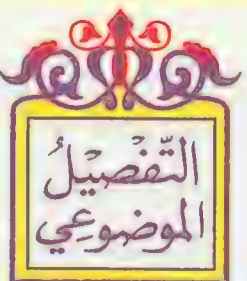 التَّفْصِيْلُ
الموْضوعِي